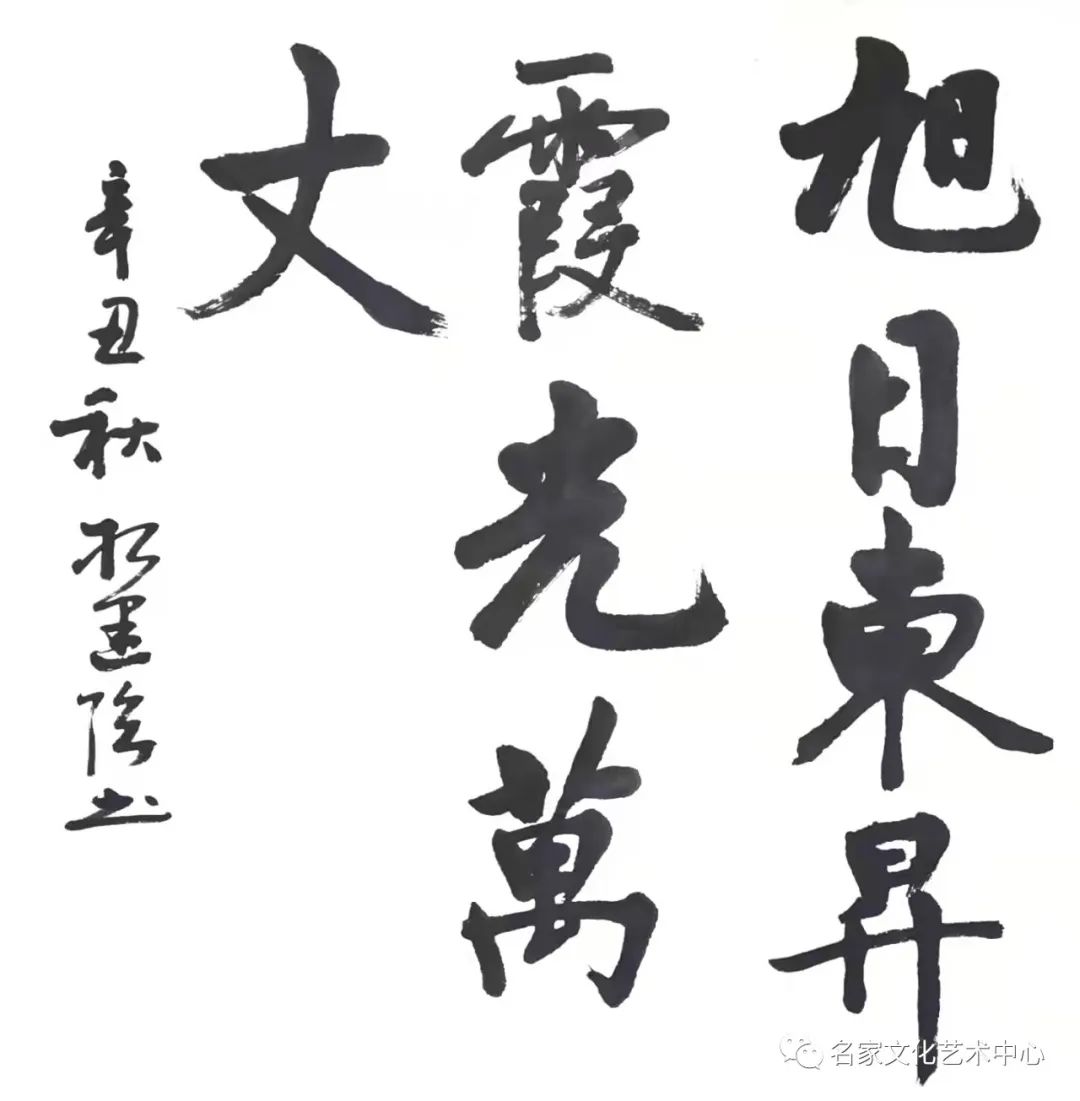 旭日東昇
霞光萬
丈
辛丑秋 松墨陰书
名家文化艺术中心